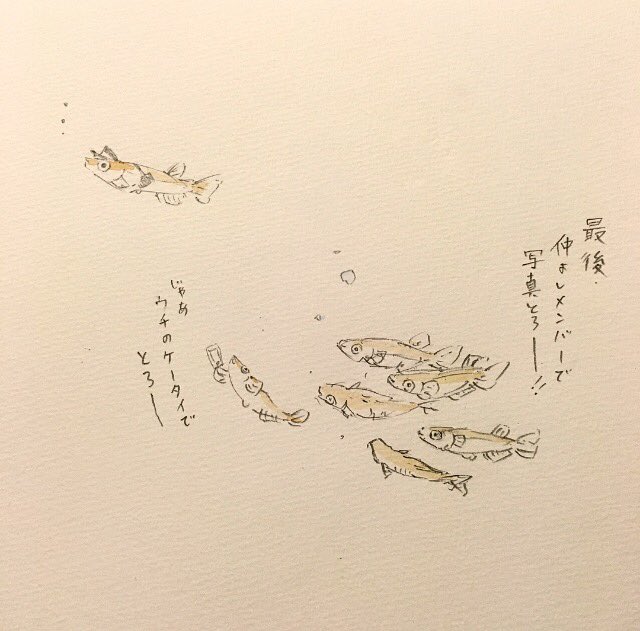 最後、
仲よしメンバーで
写真とろーー!!
じゃあ
ウチのケータイで
とろー